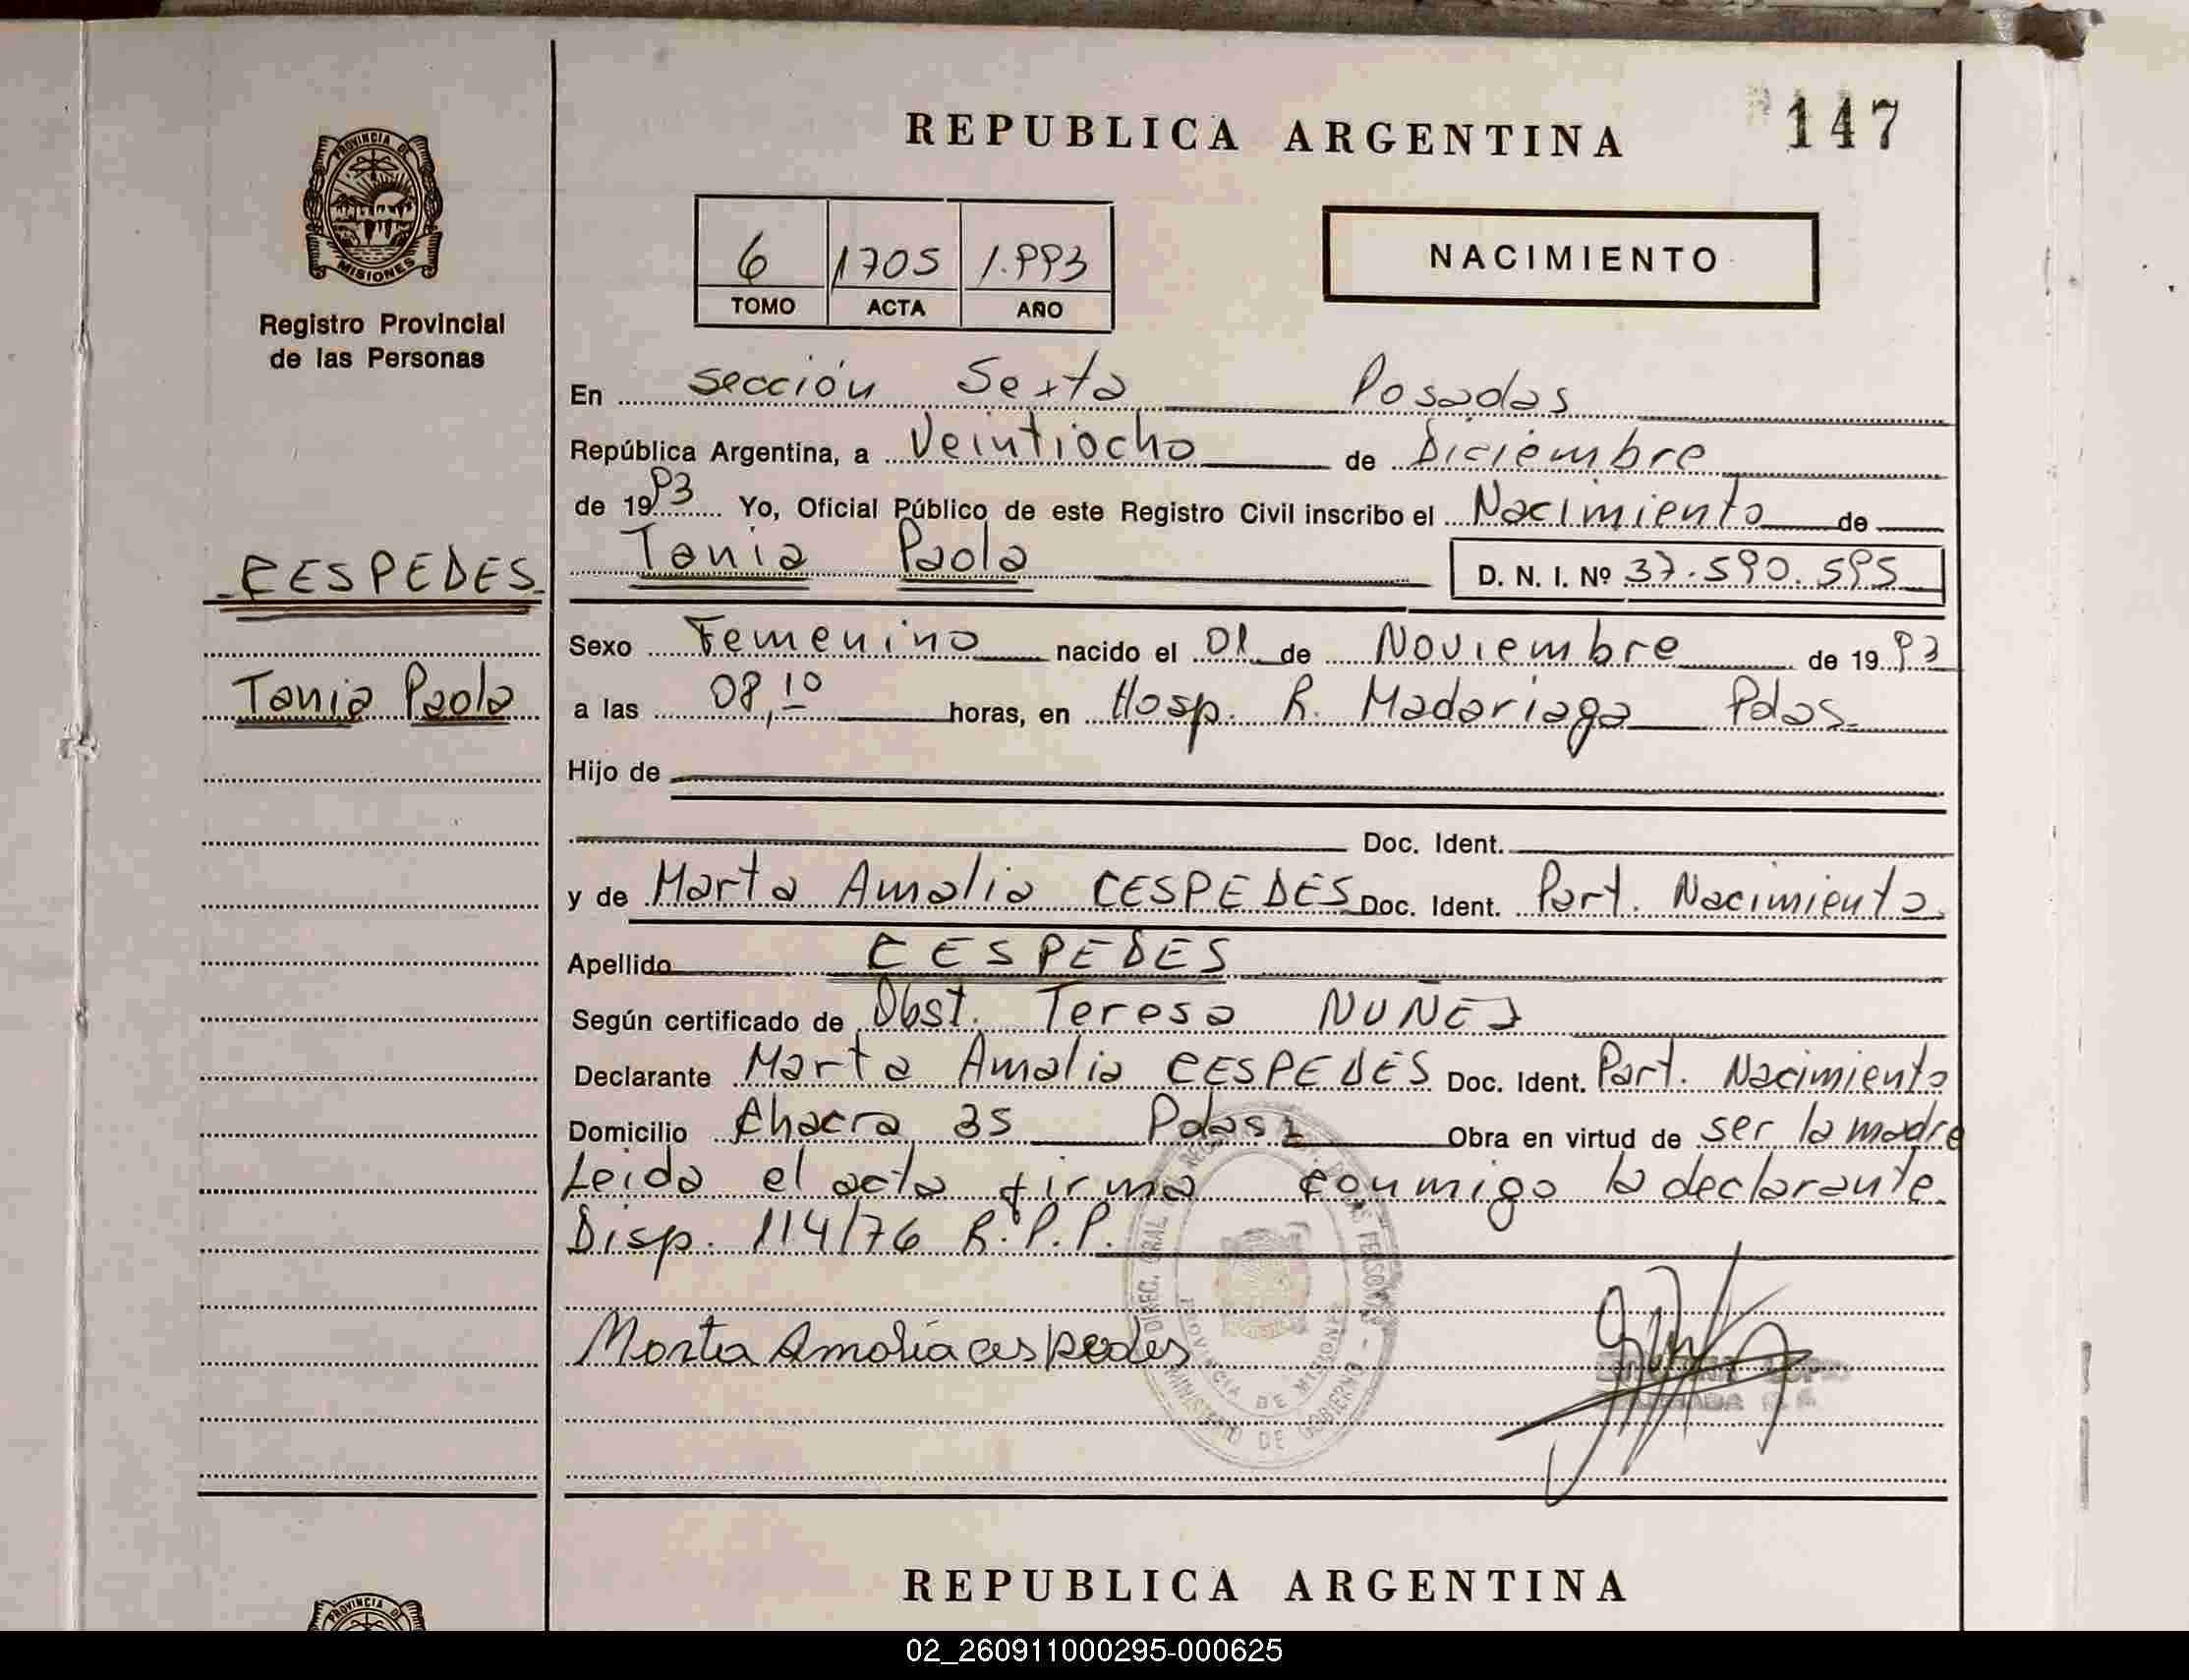 REPUBLICA ARGENTINA
147
PROVINCIA DE
MISIONES
Registro Provincial
de las Personas
6 1705 1.993
TOMO ACTA AÑO
NACIMIENTO
En sección Sexta Posadas
República Argentina, a Veintiocho de Diciembre
de 1993 Yo, Oficial Público de este Registro Civil inscribo el Nacimiento de
CESPEDES
Tania Paola D. N. I. Nº 37.590.595
Sexo Femenino nacido el 01 de Noviembre de 1993
Tania Paola
a las 08,10 horas, en Hosp. R. Madariaga Pdas.
Hijo de
Doc. Ident.
y de Marta Amalia CESPEDES Doc. Ident. Part. Nacimiento.
Apellido CESPEDES
Según certificado de Obst. Teresa NUÑEZ
Declarante Marta Amalia CESPEDES Doc. Ident. Part. Nacimiento
Domicilio Chacra 35 Pdas. Obra en virtud de ser la madre
Leida el acta firma conmigo la declarante
Disp. 114/76 R.P.P.
Marta Amalia cespedes
PROVINCIA DE MISIONES
MINISTERIO DE GOBIERNO
REPUBLICA ARGENTINA
PROVINCIA DE
02_260911000295-000625